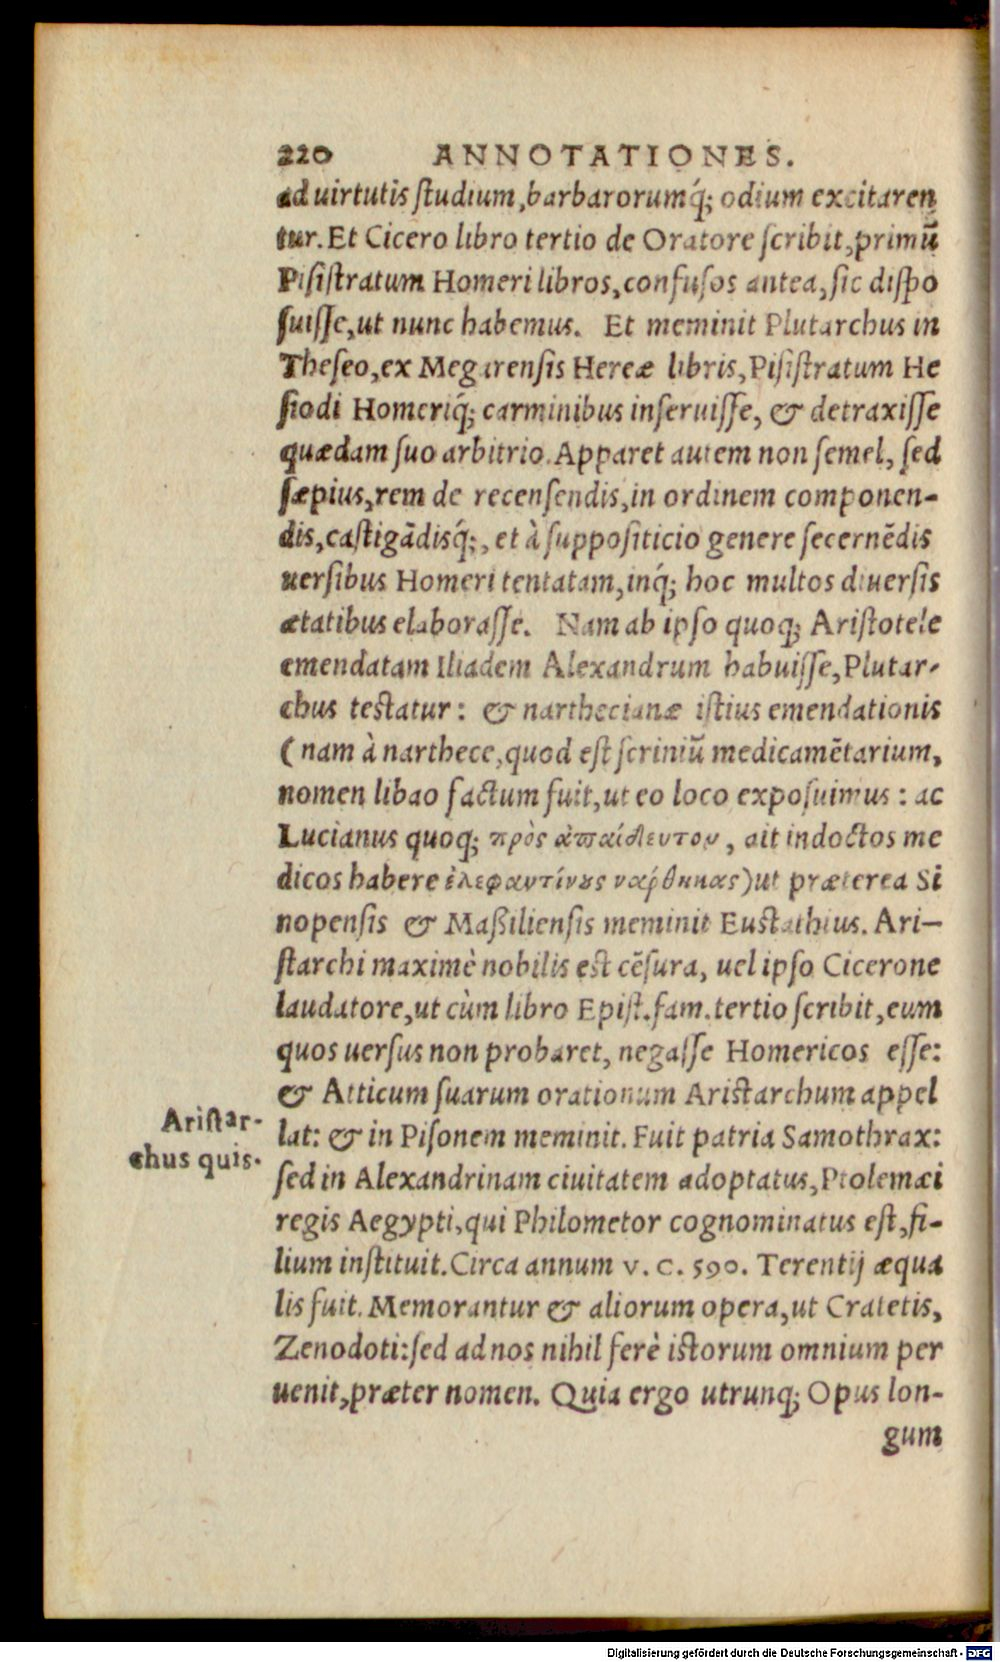 220 ANNOTATIONES.
ad uirtutis ſtudium, barbarorumq́; odium excitaren
tur. Et Cicero libro tertio de Oratore ſcribit, primũ
Piſiſtratum Homeri libros, confuſos antea, ſic diſpo
ſuiſſe, ut nunc habemus. Et meminit Plutarchus in
Theſeo, ex Megarenſis Hereæ libris, Piſiſtratum He
ſiodi Homeriq́; carminibus inſeruiſſe, & detraxiſſe
quædam ſuo arbitrio. Apparet autem non ſemel, ſed
ſæpius, rem de recenſendis, in ordinem componen-
dis, caſtigãdisq́;, et à ſuppoſiticio genere ſecernẽdis
uerſibus Homeri tentatam, inq́; hoc multos diuerſis
ætatibus elaboraſſe. Nam ab ipſo quoq; Ariſtotele
emendatam Iliadem Alexandrum habuiſſe, Plutar-
chus teſtatur: & narthecianæ iſtius emendationis
(nam à narthece, quod eſt ſcriniũ medicamẽtarium,
nomen libao factum fuit, ut eo loco expoſuimus: ac
Lucianus quoq; πρὸς ἀπαίδευτον, ait indoctos me
dicos habere ἐλεφαντίνους νάρθηκας) ut præterea Si
nopenſis & Maßilienſis meminit Euſtathius. Ari-
ſtarchi maximè nobilis eſt cẽſura, uel ipſo Cicerone
laudatore, ut cùm libro Epiſt. fam. tertio ſcribit, eum
quos uerſus non probaret, negaſſe Homericos eſſe:
& Atticum ſuarum orationum Ariſtarchum appel
lat: & in Piſonem meminit. Fuit patria Samothrax:
ſed in Alexandrinam ciuitatem adoptatus, Ptolemæi
regis Aegypti, qui Philometor cognominatus eſt, fi-
lium inſtituit. Circa annum V. C. 590. Terentij æqua
lis fuit. Memorantur & aliorum opera, ut Cratetis,
Zenodoti: ſed ad nos nihil ferè iſtorum omnium per
uenit, præter nomen. Quia ergo utrunq; Opus lon-
gum
Ariſtar-
chus quis.
Digitalisierung gefördert durch die Deutsche Forschungsgemeinschaft - DFG